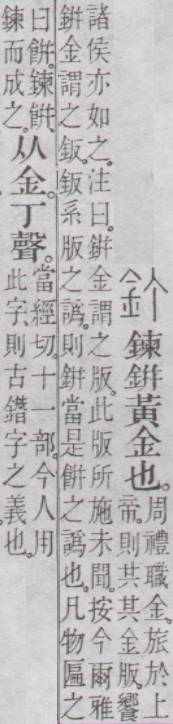 釘 鍊鉼黃金也。周禮職金。旅於上
帝。則共其金版。饗
諸侯亦如之。注曰。鉼金謂之版。此版所施未聞。按今爾雅
鉼金謂之鈑。鈑系版之譌。則鉼當是餅之譌也。凡物匾之
曰餅。鍊餅、
鍊而成之。从金。丁聲。當經切。十一部。今人用
此字、則古鐕字之義也。